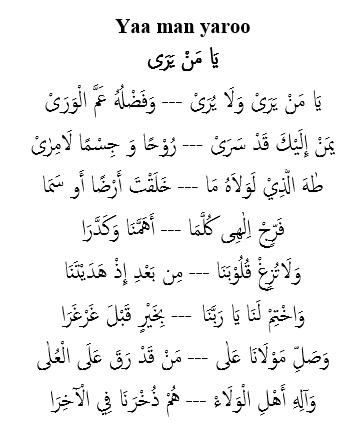 Yaa man yaroo
يَا مَنْ يَرَى
يَا مَنْ يَرَىْ وَلَا يُرَىْ --- وَفَضْلُهُ عَمَّ الْوَرَىْ
بِمَنْ إِلَيْكَ قَدْ سَرَىْ --- رُوْحًا وَ جِسْمًا لَامِرَىْ
طٰهَ الَّذِيْ لَوْلَاهُ مَا --- خَلَقْتَ أَرْضًا أَو سَمَا
فَرِّجْ اِلٰهِى كُلَّمَا --- أَهَمَّنَا وَكَدَّرَا
وَلَاتُزِغْ قُلُوْبَنَا --- مِن بَعْدِ إِذْ هَدَيْتَنَا
وَاخْتِمْ لَنَا يَا رَبَّنَا --- بِخَيْرٍ قَبْلَ غَرْغَرَا
وَصَلِّ مَوْلَانَا عَلٰى --- مَنْ قَدْ رَقَ عَلَى الْعُلٰى
وَآلِهِ أَهْلِ الْوَلَاءْ --- هُمْ ذُخْرَنَا فِي الْآخِرَا